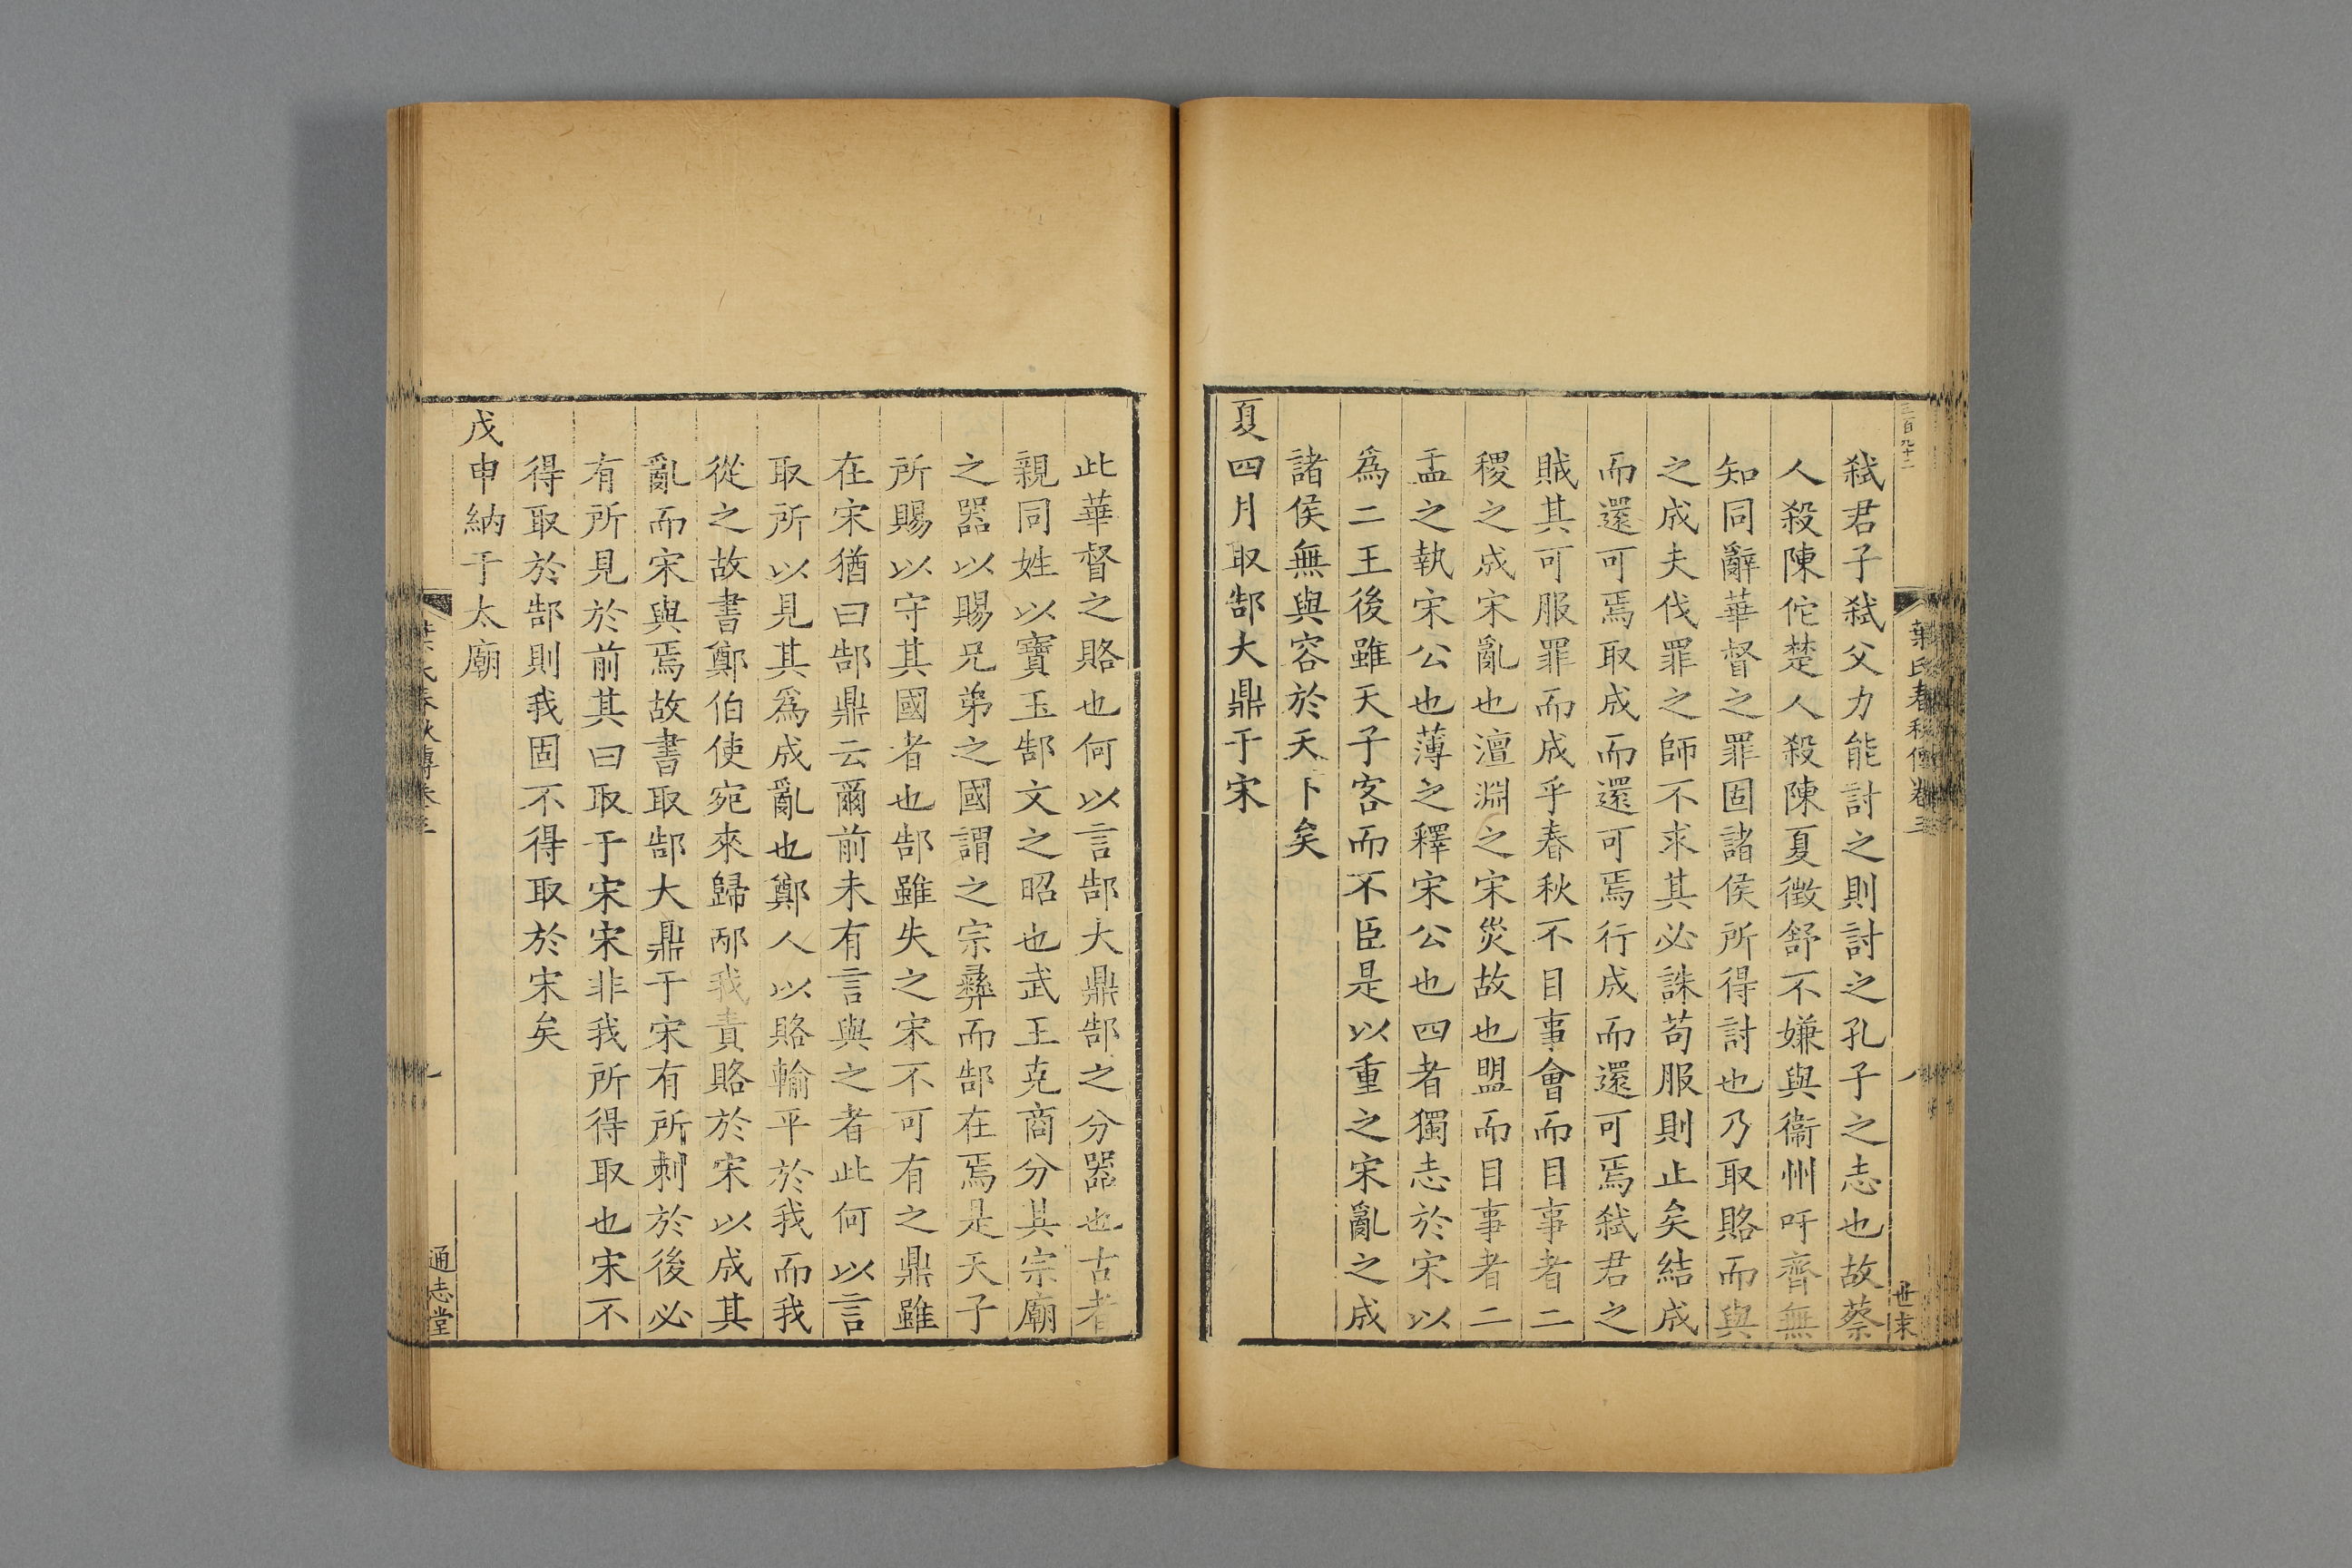 三百九十二
葉氏春秋傳卷三
八
世末
弒君子弒父力能討之則討之孔子之志也故蔡
人殺陳佗楚人殺陳夏徵舒不嫌與衞州吁齊無
知同辭華督之罪固諸侯所得討也乃取賂而與
之成夫伐罪之師不求其必誅苟服則止矣結成
而還可焉取成而還可焉行成而還可焉弒君之
賊其可服罪而成乎春秋不目事會而目事者二
稷之成宋亂也澶淵之宋災故也盟而目事者二
盂之執宋公也薄之釋宋公也四者獨志於宋以
爲二王後雖天子客而不臣是以重之宋亂之成
諸侯無與容於天下矣
夏四月取郜大鼎于宋
此華督之賂也何以言郜大鼎郜之分器也古者
親同姓以寶玉郜文之昭也武王克商分其宗廟
之器以賜兄弟之國謂之宗彝而郜在焉是天子
所賜以守其國者也郜雖失之宋不可有之鼎雖
在宋猶曰郜鼎云爾前未有言與之者此何以言
取所以見其爲成亂也鄭人以賂輸平於我而我
從之故書鄭伯使宛來歸邴我責賂於宋以成其
亂而宋與焉故書取郜大鼎于宋有所刺於後必
有所見於前其曰取于宋宋非我所得取也宋不
得取於郜則我固不得取於宋矣
戊申納于太廟
葉氏春秋傳卷三
通志堂